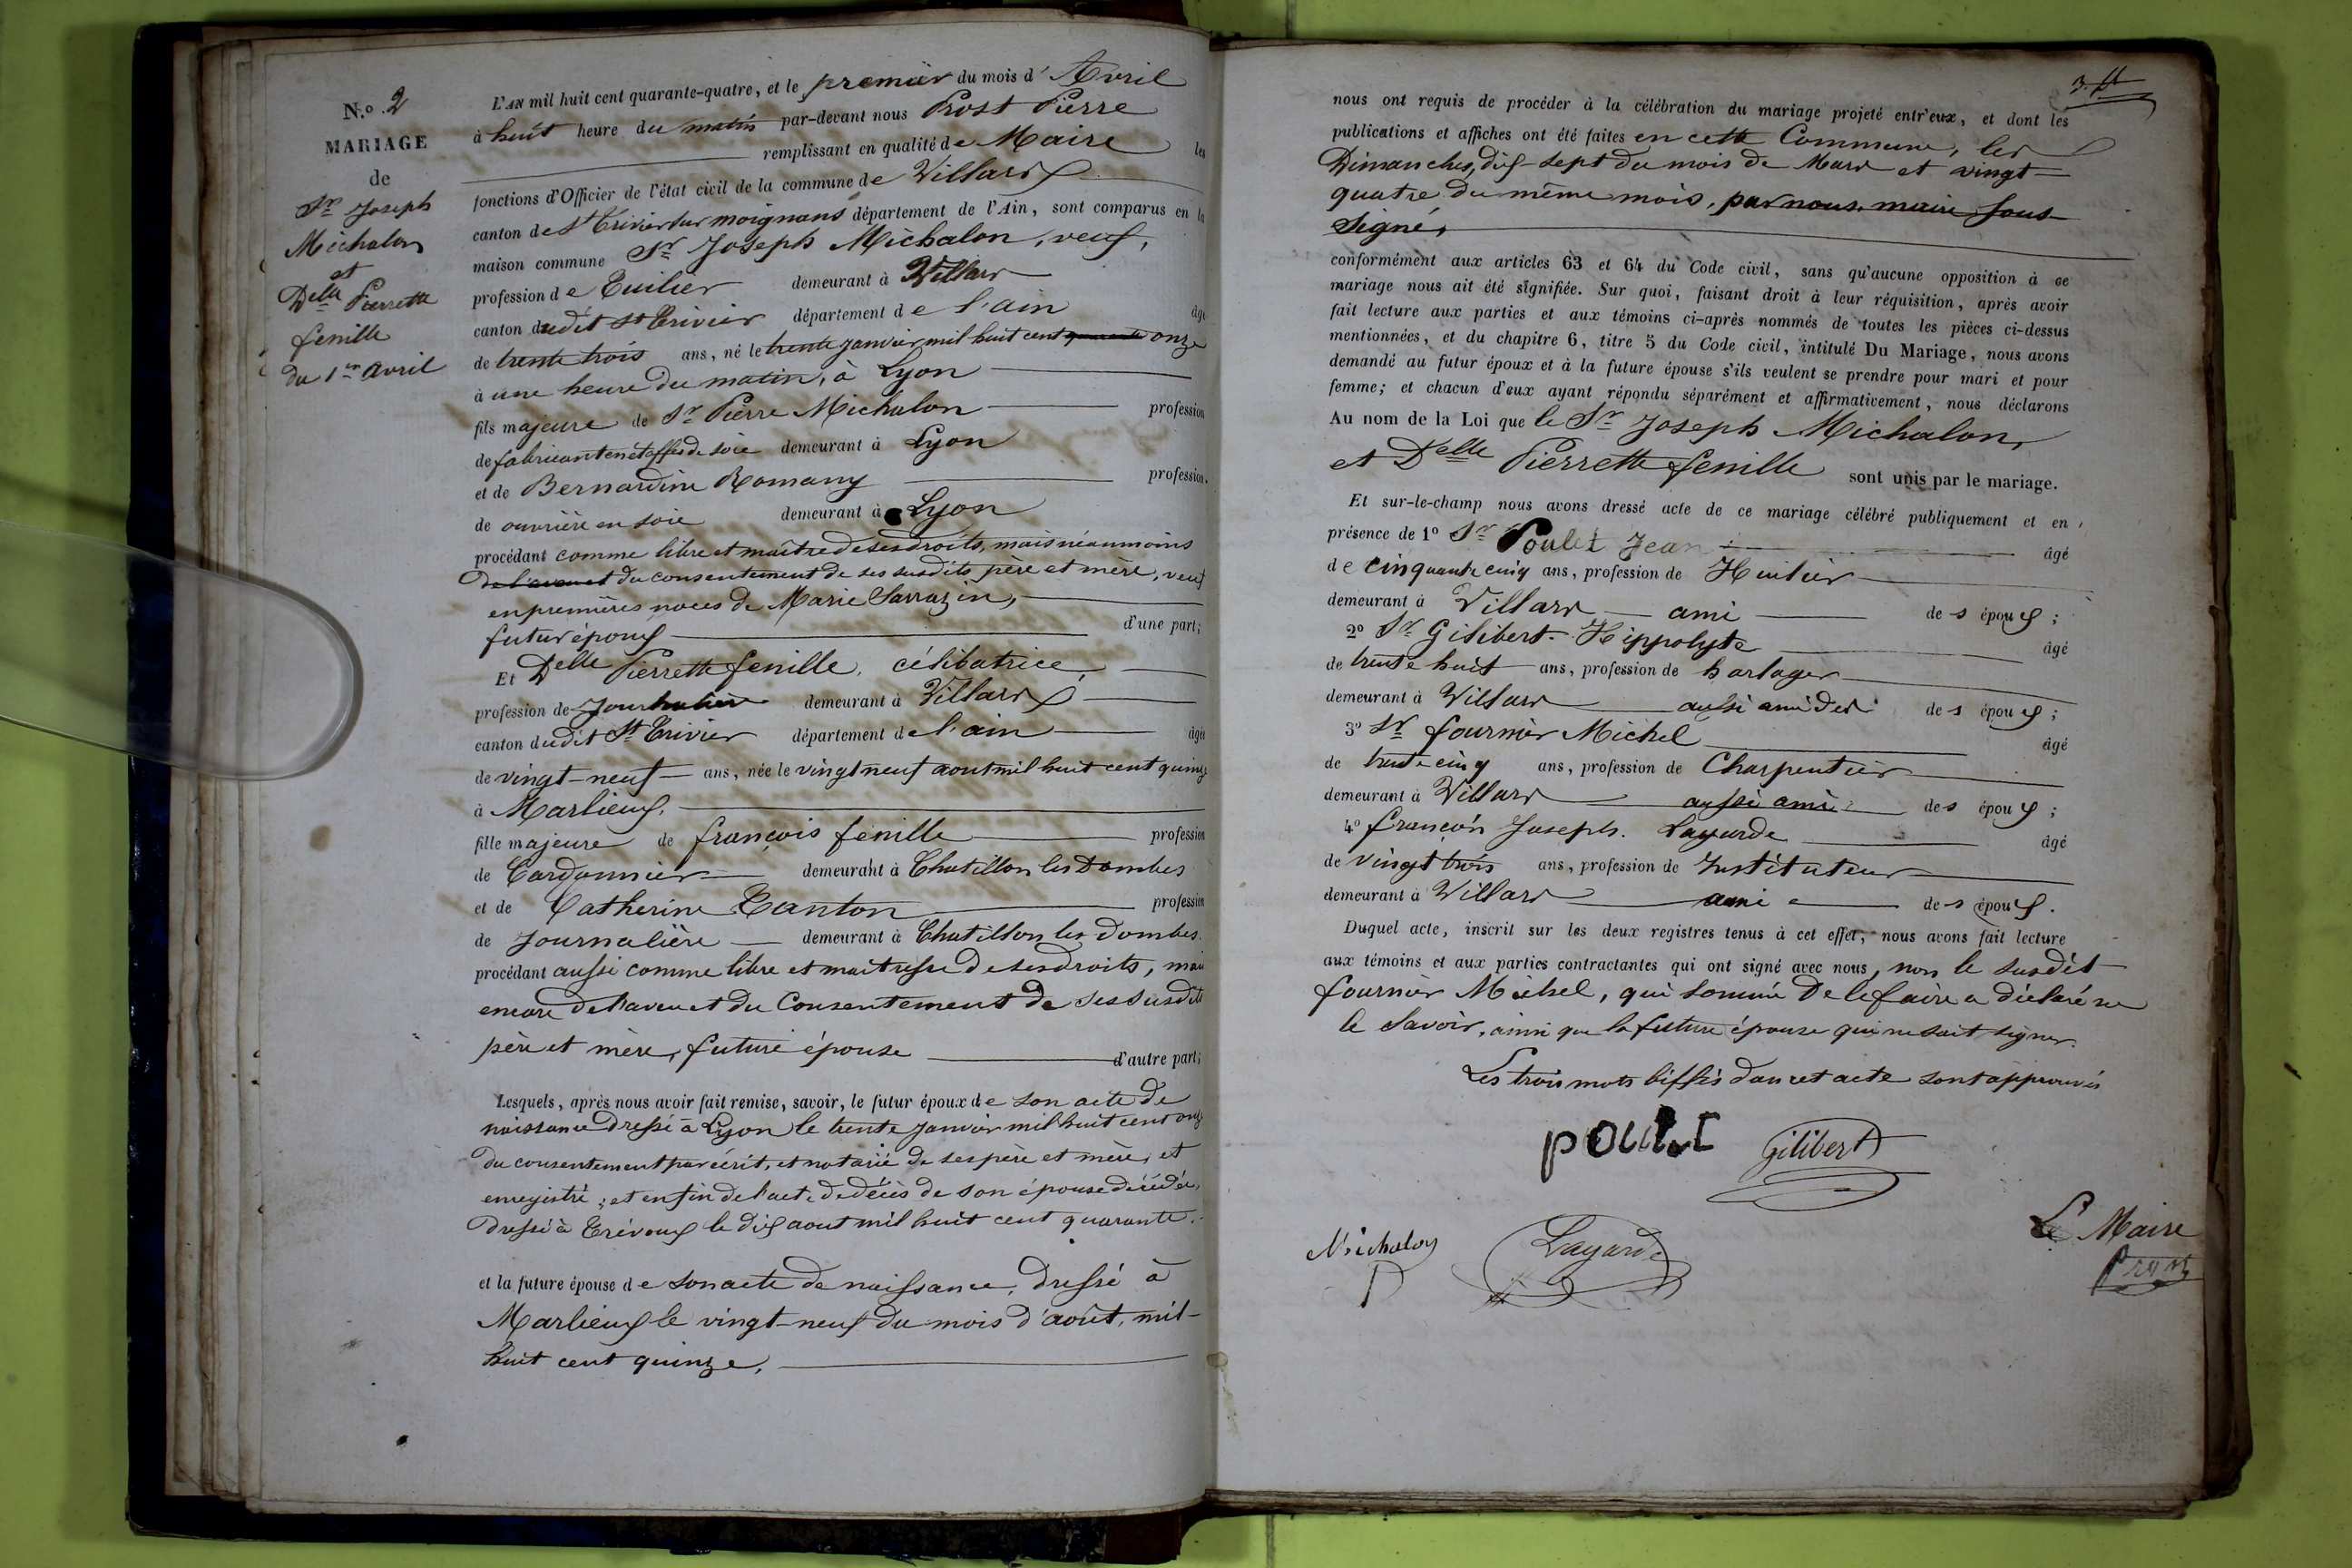 N.º 2
MARIAGE
de
Sr Joseph
Michalon
et
Delle Pierrette
fenille
du 1er avril
L'AN mil huit cent quarante-quatre, et le premier du mois d'Avril
à huit heure du matin par-devant nous Prost Pierre
remplissant en qualité de Maire les
fonctions d'Officier de l'état civil de la commune de Villars
canton de St Trivier sur moignans département de l'Ain, sont comparus en la
maison commune Sr Joseph Michalon, veuf,
profession de Tuilier demeurant à Villars
canton dudit St Trivier département de l'ain âgé
de trente trois ans, né le trente janvier mil huit cent quarante onze
à une heure du matin, à Lyon
fils majeure de Sr Pierre Michalon profession
de fabricant en étoffes de soie demeurant à Lyon
et de Bernardine Romany profession
de ouvrière en soie demeurant à Lyon
procédant comme libre et maître de ses droits, mais néanmoins
de l'aveu et du consentement de ses susdits père et mère, veuf
en premières noces de Marie Sarrazin,
futur époux d'une part;
Et Delle Pierrette fenille, célibatrice,
profession de Journalière demeurant à Villars
canton dudit St Trivier département de l'ain âgée
de vingt-neuf ans, née le vingt neuf aout mil huit cent quinze
à Marlieux.
fille majeure de françois fenille profession
de Cordonnier demeurant à Chatillon les Dombes
et de Catherine Tanton profession
de Journalière demeurant à Chatillon les Dombes.
procédant aussi comme libre et maitresse de ses droits, mais
encore de l'aveu et du Consentement de ses susdits
père et mère, future épouse d'autre part;
Lesquels, après nous avoir fait remise, savoir, le futur époux de son acte de
naissance dressé à Lyon le trente janvier mil huit cent onze
du consentement par écrit, et notarié de ses père et mère, et
enregistré; et enfin de l'acte de décès de son épouse décédée,
dressé à Trévoux le dix aout mil huit cent quarante.
et la future épouse de son acte de naissance, dressé à
Marlieux le vingt-neuf du mois d'août, mil-
huit cent quinze,
nous ont requis de procéder à la célébration du mariage projeté entr'eux, et dont les
publications et affiches ont été faites en cette Commune, les
Dimanches, dix-sept du mois de Mars et vingt-
quatre du même mois, par nous, maire, sous-
signé,
conformément aux articles 63 et 64 du Code civil, sans qu'aucune opposition à ce
mariage nous ait été signifiée. Sur quoi, faisant droit à leur réquisition, après avoir
fait lecture aux parties et aux témoins ci-après nommés de toutes les pièces ci-dessus
mentionnées, et du chapitre 6, titre 5 du Code civil, intitulé Du Mariage, nous avons
demandé au futur époux et à la future épouse s'ils veulent se prendre pour mari et pour
femme; et chacun d'eux ayant répondu séparément et affirmativement, nous déclarons
Au nom de la Loi que le Sr Joseph Michalon,
et Delle Pierrette fenille sont unis par le mariage.
Et sur-le-champ nous avons dressé acte de ce mariage célébré publiquement et en
présence de 1º Sr Poulet Jean âgé
de cinquante cinq ans, profession de Huilier
demeurant à Villars ami des époux;
2º Sr Gilibert Hippolyte âgé
de trente huit ans, profession de horloger
demeurant à Villars aussi ami des des époux;
3º Sr fournier Michel âgé
de trente cinq ans, profession de Charpentier
demeurant à Villars aussi ami des époux;
4º françois Joseph Layarde âgé
de vingt trois ans, profession de Instituteur
demeurant à Villars ami des époux.
Duquel acte, inscrit sur les deux registres tenus à cet effet, nous avons fait lecture
aux témoins et aux parties contractantes qui ont signé avec nous, non le susdit
fournier Michel, qui sommé de le faire a déclaré ne
le savoir, ainsi que la future épouse qui ne sait signer.
Les trois mots biffés dans cet acte sont approuvés
poulet Gilibert
Michalon Layarde
Le Maire
Prost